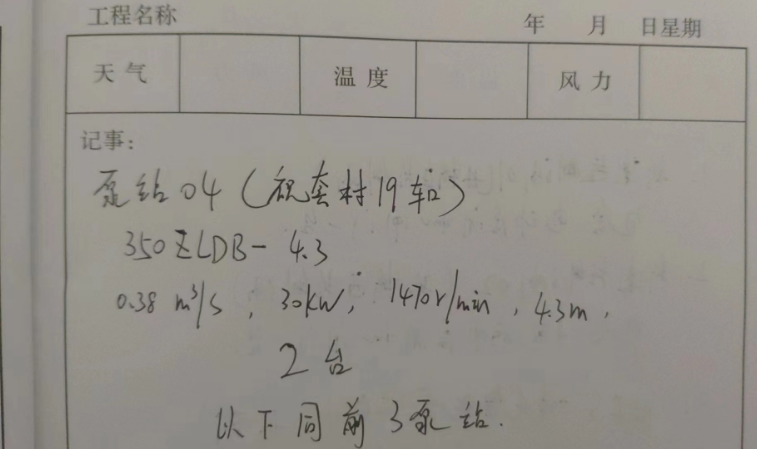 工程名称 年 月 日星期
天气 温度 风力
记事:
泵站04(祝套村19车口)
350ZLDB-4.3
0.38 m³/s, 30kw, 1470r/min, 4.3m,
2台
以下同前3泵站.